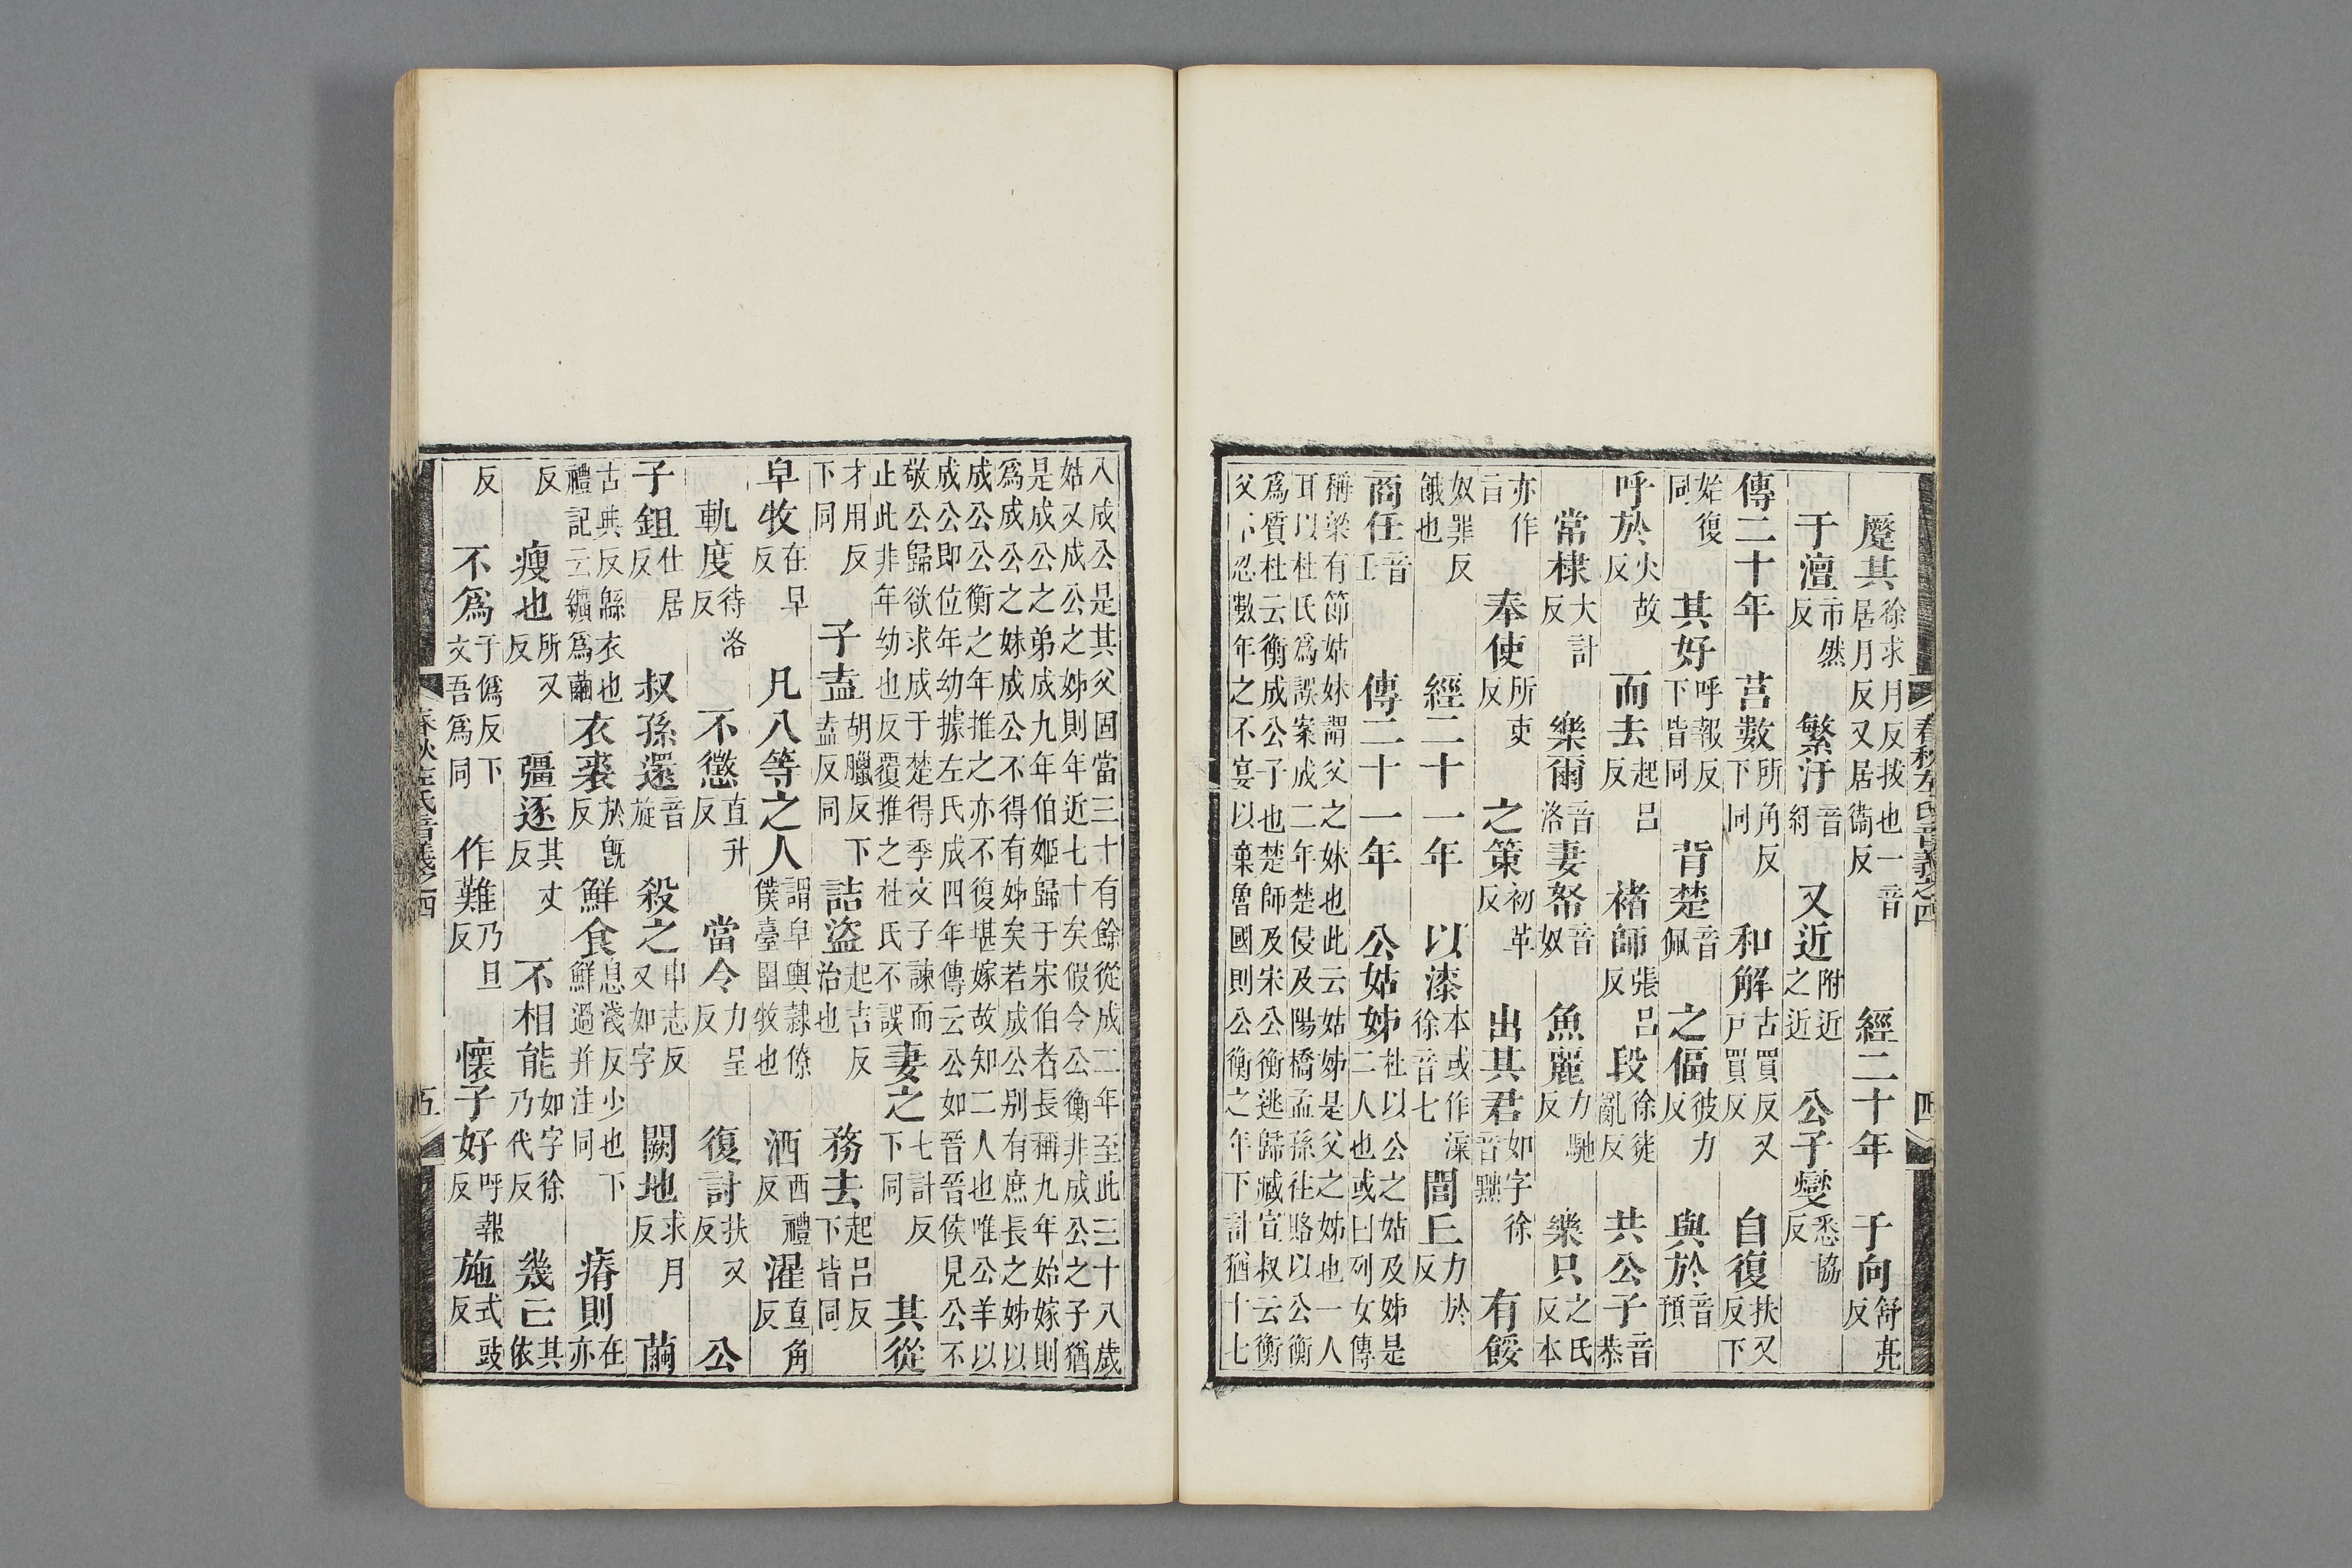 春秋左氏音義之四 四
蹷其徐求月反拔也一音居月反又居衞反 經二十年 于向舒亮反
于澶市然反 繁汙音紆 又近附近之近 公子燮悉協反
傳二十年 莒數所角反下同 和解古買反又戸買反 自復扶又反下
始復同 其好呼報反下皆同 背楚音佩 之偪彼力反 與於音預
呼於火故反 而去起呂反 褚師張呂反 段徐徒亂反 共公子音恭
常棣大計反 樂爾音洛 妻帑音奴 魚麗力馳反 樂只之氏反本
亦作旨 奉使所吏反 之策初革反 出其君如字徐音黜 有餒
奴罪反餓也 經二十一年 以漆本或作徐音七 閭丘力於反
商任音壬 傳二十一年 公姑姊杜以公之姑及姊是二人也或曰列女傳
稱梁有節姑妹謂父之妹也此云姑姊是父之姊也一人
耳以杜氏爲誤案成二年楚侵及陽橋孟孫往賂以公衡
爲質杜云衡成公子也楚師及宋公衡逃歸臧宣叔云衡
父不忍數年之不宴以棄魯國則公衡之年下計猶十七
八成公是其父固當三十有餘從成二年至此三十八歲
姑又成公之姊則年近七十矣假令公衡非成公之子猶
是成公之弟成九年伯姬歸于宋伯者長稱九年始嫁則
爲成公之妹成公不得有姊矣若成公別有庶長之姊以
成公公衡之年推之亦不復堪嫁故知二人也唯公羊以
成公即位年幼據左氏成四年傳云公如晉晉侯見公不
敬公歸欲求成于楚得季文子諫而
止此非年幼也反覆推之杜氏不誤 妻之七計反下同 其從
才用反下同 子盍胡臘反下盍反同 詰盜起吉反治也 務去起呂反下皆同
皁牧在早反 凡八等之人謂皁輿隸僚僕臺圉牧也 洒西禮反 濯直角反
軌度待洛反 不懲直升反 當令力呈反 復討扶又反 公
子鉏仕居反 叔孫還音旋 殺之申志反又如字 闕地求月反 繭
古典反緜衣也禮記云纊爲繭 衣裘於旣反 鮮食息淺反少也下鮮過并注同 瘠則在亦
反 瘦也所又反 彊逐其丈反 不相能如字徐乃代反 幾已其依
反 不爲于僞反下文吾爲同 作難乃旦反 懷子好呼報反 施式豉反
春秋左氏音義之四 五